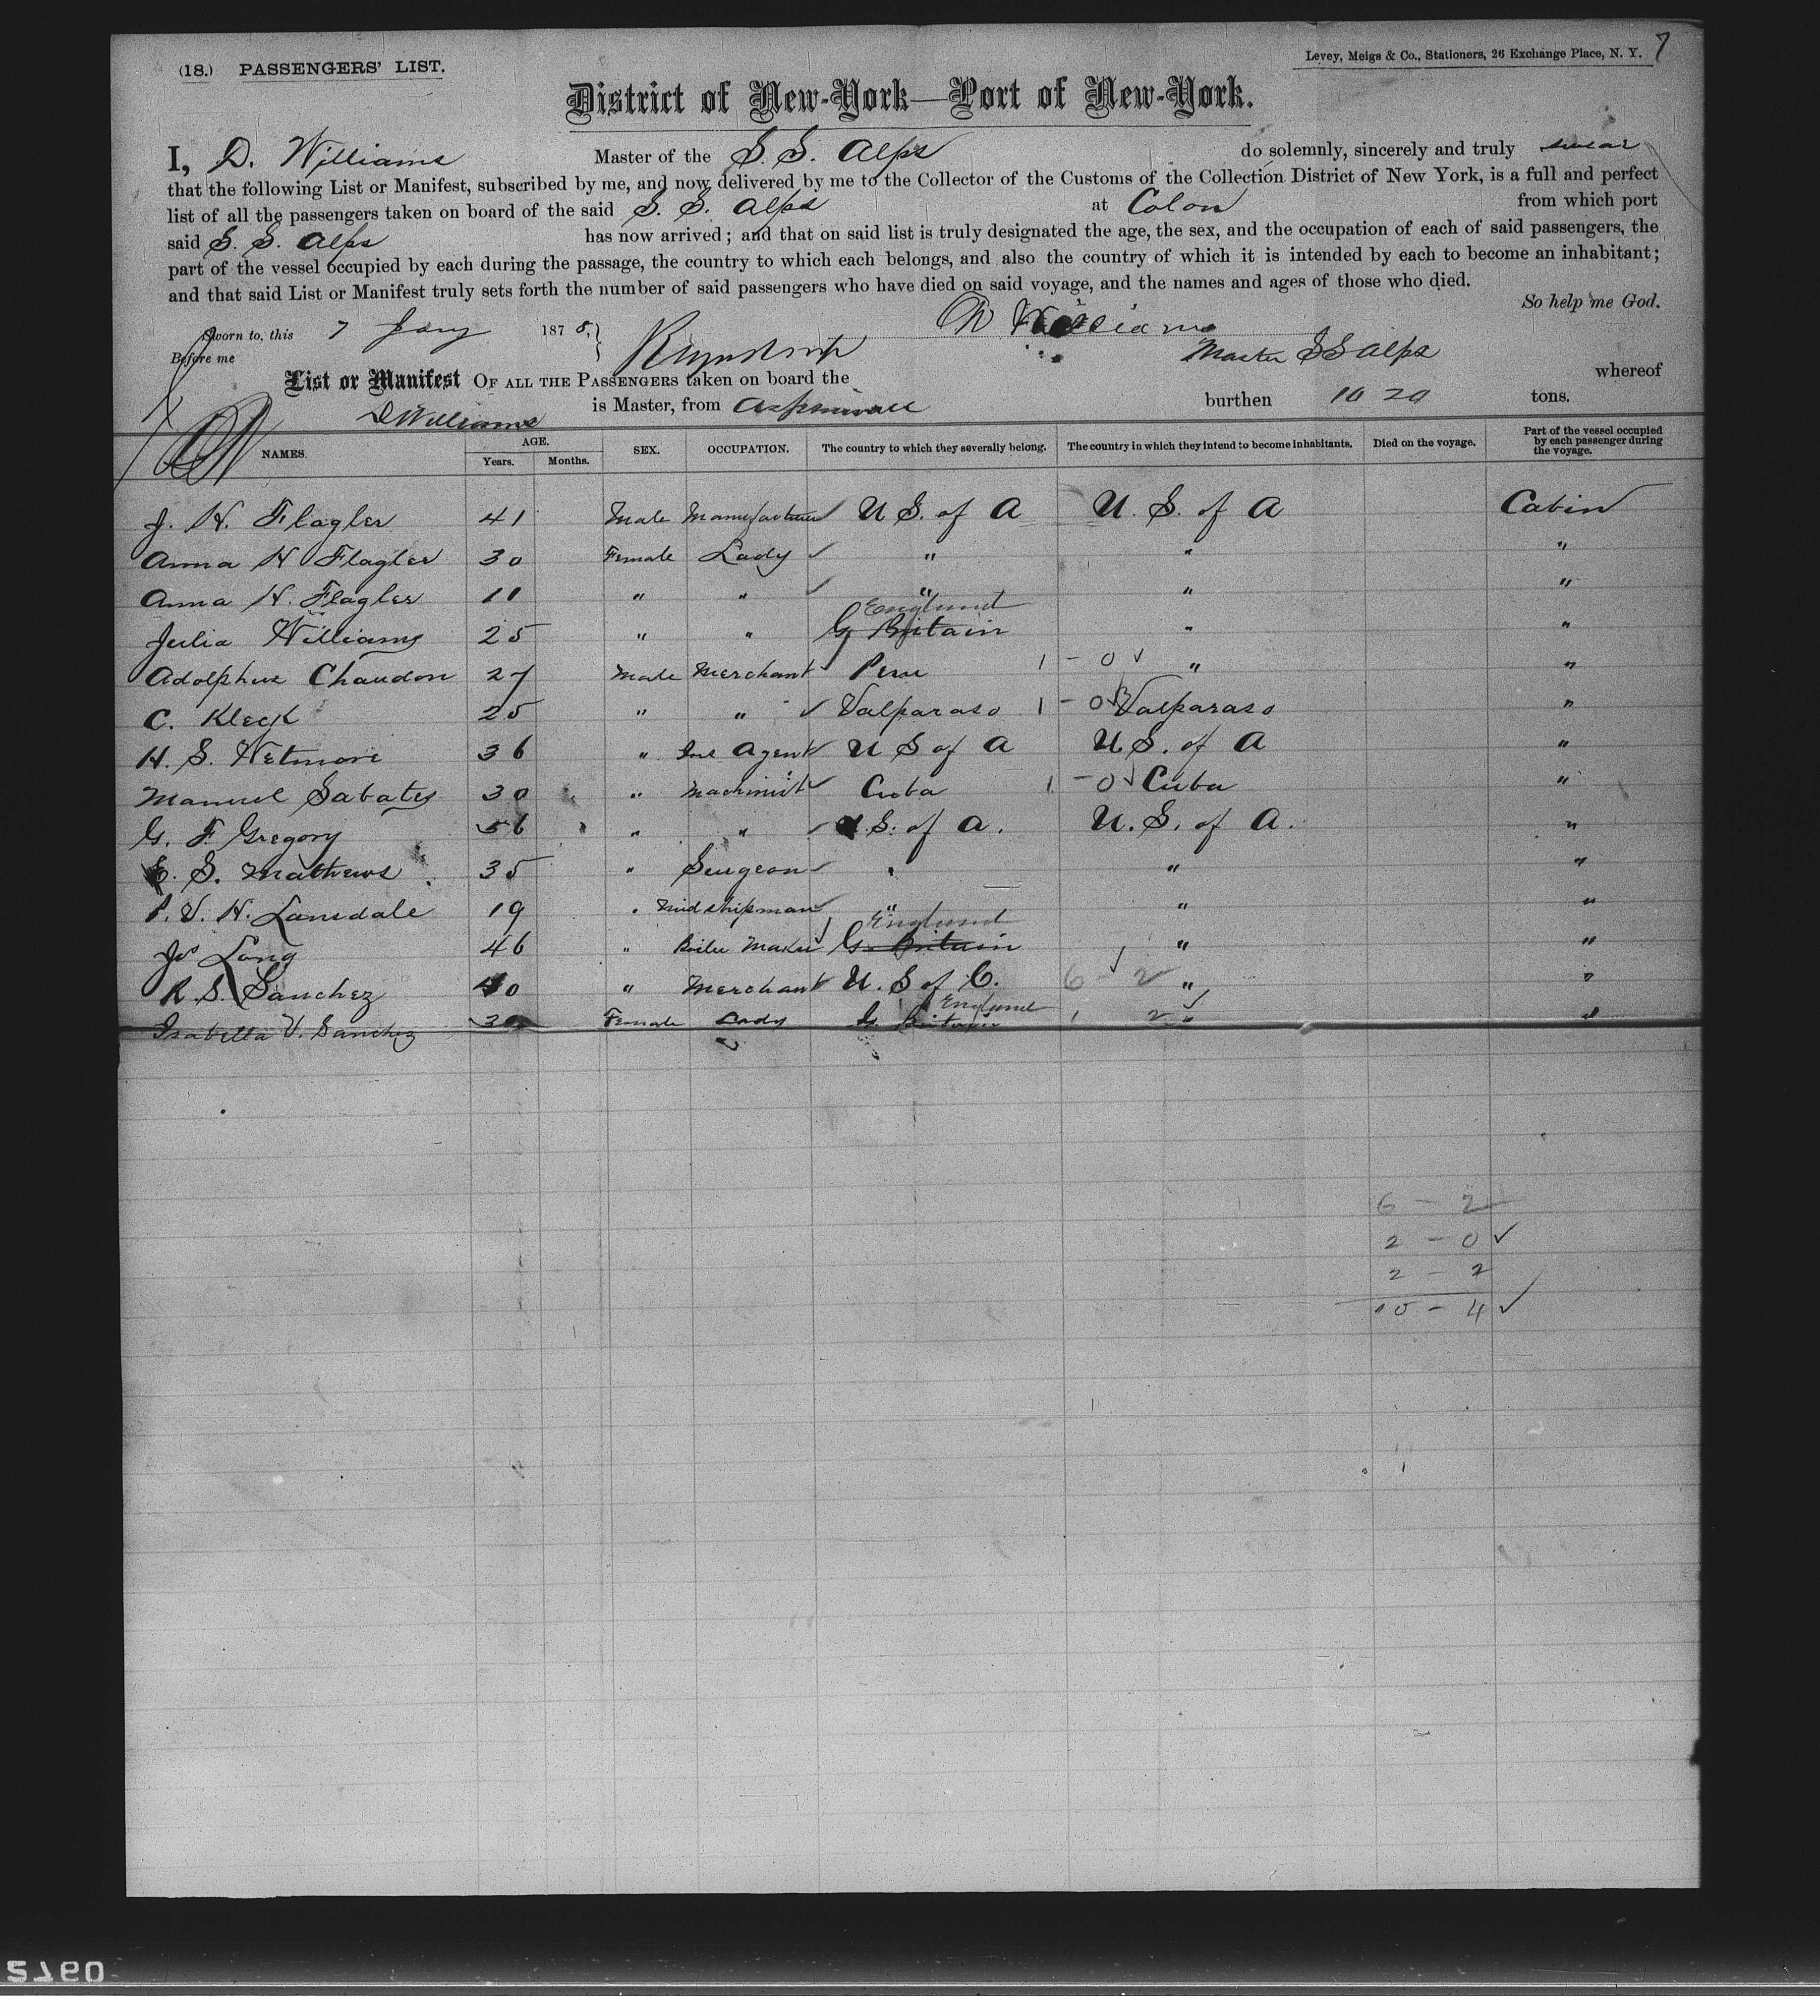 7
(18.) PASSENGERS' LIST.
Levey, Meigs & Co., Stationers, 26 Exchange Place, N. Y.
District of New-York—Port of New-York.
I, D. Williams Master of the S. S. Alps do solemnly, sincerely and truly swear
that the following List or Manifest, subscribed by me, and now delivered by me to the Collector of the Customs of the Collection District of New York, is a full and perfect
list of all the passengers taken on board of the said S. S. Alps at Colon from which port
said S. S. Alps has now arrived; and that on said list is truly designated the age, the sex, and the occupation of each of said passengers, the
part of the vessel occupied by each during the passage, the country to which each belongs, and also the country of which it is intended by each to become an inhabitant;
and that said List or Manifest truly sets forth the number of said passengers who have died on said voyage, and the names and ages of those who died.
So help me God.
Sworn to, this 7 Jany 1878. D Williams
Before me Master S S Alps
List or Manifest OF ALL THE PASSENGERS taken on board the whereof
D Williams is Master, from Aspinwall burthen 1020 tons.
NAMES. AGE. Years. Months. SEX. OCCUPATION. The country to which they severally belong. The country in which they intend to become inhabitants. Died on the voyage. Part of the vessel occupied by each passenger during the voyage.
J. H. Flagler 41 Male Manufacturer U S. of A U. S. of A Cabin
Anna H Flagler 30 Female Lady " " "
Anna H. Flagler 11 " " " " "
Julia Williams 25 " " G Britain England " "
Adolphus Chaudon 27 Male Merchant Peru 1 - 0 " "
C. Kleck 25 " " Valparaso 1 - 0 Valparaso "
H. S. Wetmore 36 " Ins Agent U S of A U S. of A "
Manuel Sabates 30 " Machinist Cuba 1 - 0 Cuba "
G. F. Gregory 56 " " U.S. of A. U. S. of A. "
E. S. Mathews 35 " Surgeon " " "
P. V. H. Lansdale 19 " Midshipman " " "
Js Long 46 " Boiler Maker G. Britain England " "
R. S. Sanchez 40 " Merchant U. S of C. 6 - 2 " "
Isabella V. Sanchez 30 Female Lady G. Britain England 1 2 " "
6 - 2
2 - 0
2 - 2
10 - 4
0972